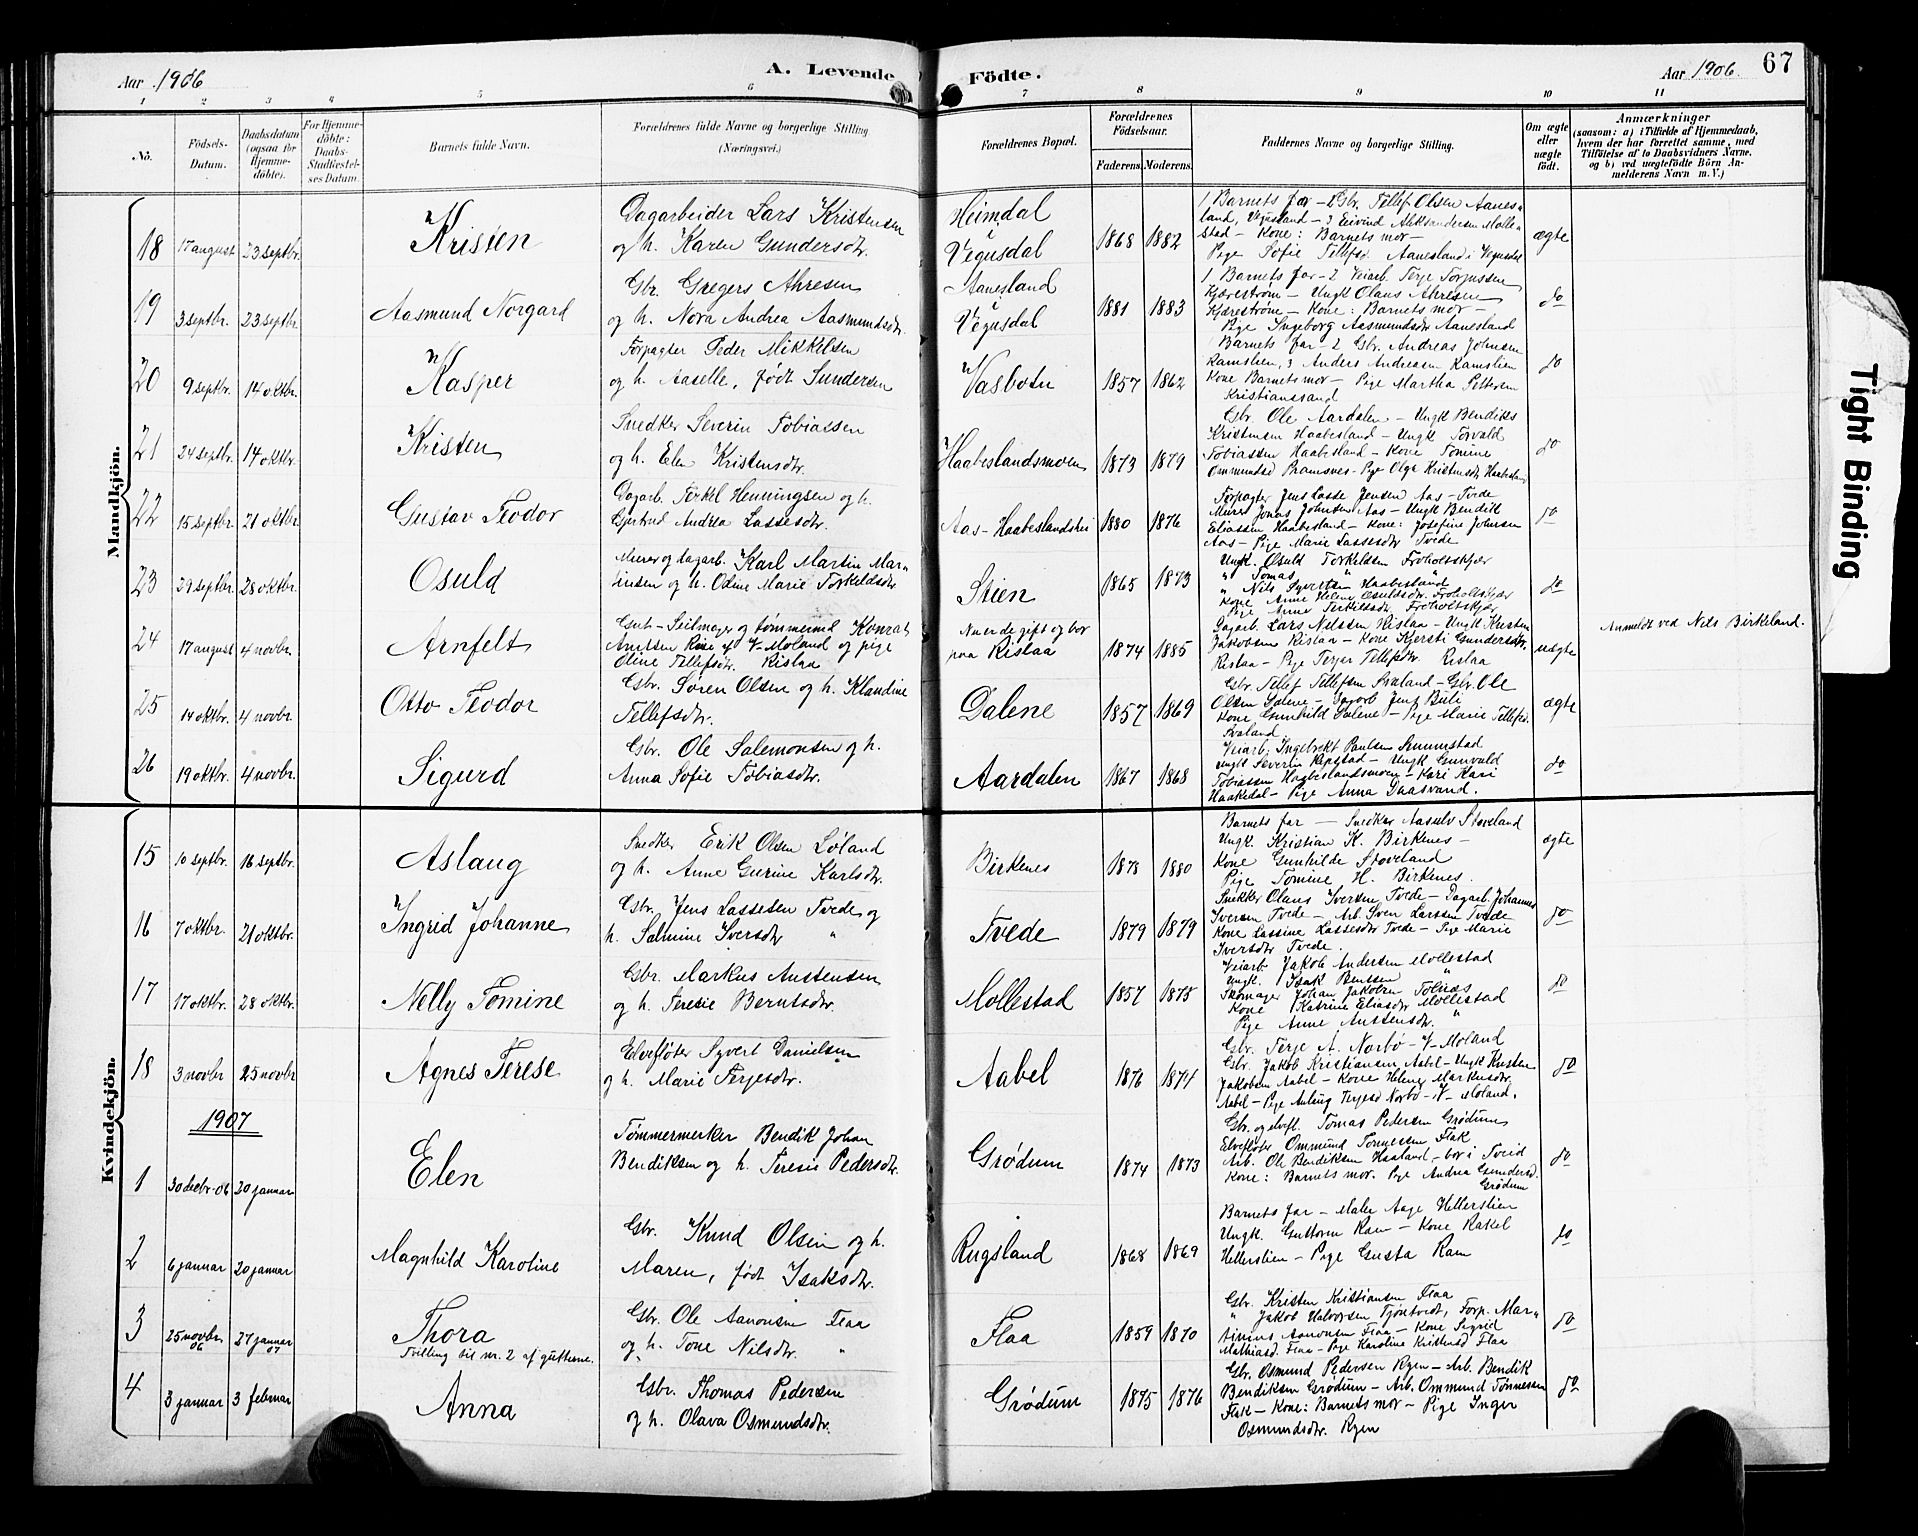 Aar 1906
A. Levende
Födte.
Aar 1906.
67
1 2 3 4 5 6 7 8 9 10 11
No.
Födsels-Datum.
Daabsdatum (ogsaa for Hjemmedöbte).
For Hjemmedöbte: Daabs-Stadfæstelses Datum.
Barnets fulde Navn.
Forældrenes fulde Navne og borgerlige Stilling (Næringsvei.)
Forældrenes Bopæl.
Forældrenes Födselsaar.
Faderens. Moderens.
Faddernes Navne og borgerlige Stilling.
Om ægte eller uægte födt.
Anmærkninger
(saasom: a) i Tilfælde af Hjemmedaab,
hvem der har forrettet samme, med
Tilföielse af to Daabsvidners Navne,
og b) ved uægtefödte Börn An-
melderens Navn m. V.)
Mandkjön.
18 17 august 23 septbr. Kristen
Dagarbeider Lars Kristensen
og h. Karen Gundersdtr.
Heimdal
i
Vegusdal
1868 1882
1 Barnets far - 2 Gbr. Tellef Olsen Aanes=
land, Vegusland - 3 Eivind Aleksandersen Molle=
stad - Kone: Barnets mor -
Pige Sofie Tellefsd. Aanesland i Vegusdal
ægte
19 3 septbr. 23 septbr. Aasmund Norgard
Gbr. Gregers Ahresen
og h. Nora Andrea Aasmundsdtr.
Aanesland
i
Vegusdal
1881 1883
1 Barnets far - 2 Veiarb. Terje Torjussen
Kjærestrøm - Ungk Olaus Ahresen
Kjærestrøm - Kone: Barnets mor -
Pige Ingeborg Aasmundsdtr Aanesland
do
20 9 septbr. 14 oktbr. Kasper
Forpagter Peder Mikkelsen
og h. Aaselle, født Gundersen
Vasbotn
1857 1862
Barnets far - 2 Gbr. Andreas Johnsen
Ramslien, 3 Anders Andreasen Ramslien
Kone Barnets mor - Pige Martha Pettersen
Kristianssand
do
21 24 septbr. 14 oktbr. Kristen
Snedker Severin Tobiassen
og h. Elen Kristensdtr.
Haabeslandsmoen
1873 1879
Gbr. Ole Aardalen - Ungk Bendikes
Kristensen Haabesland - Ungk Torvald
Tobiassen Haabesland - Kone Tomine
Ommundsd Pramsnes - Pige Olga Kristensdtr Haabesland
do
22 15 septbr. 21 oktbr. Gustav Teodor
Dagarb. Terkel Henningsen og h.
Gjertrud Andrea Lassesdtr.
Aas - Haabeslandshei
1880 1876
Forpagter Jens Lasse Jensen Aas - Tvede
Murer Jonas Johnsen Aas - Ungk Bendik
Eliassen Haabesland - Kone: Josefine Johnsen
Aas - Pige Marie Lassesdtr Tvede
do
23 29 septbr. 28 oktbr. Osuld
Murer og dagarb. Karl Martin Mar=
tinsen og h. Odine Marie Torkeldsdtr
Stien
1865 1873
Ungk. Osuld Torkeldsen Froholtskjær
" Tomas "
" Nils Syvertsen Haabesland
Kone Anne Helene Osuldsdtr. Froholtskjær
Pige Anne Terkelsdtr. Froholtskjær
do
24 17 august 4 novbr. Arnfelt
Gmt - Seilmager og tømmermd Konrat
Anutsen Rise af V-Moland og pige
Oline Tellefsdtr. Rislaa
Nu er de gift og bor
paa Rislaa
1874 1885
Dagarb. Lars Nilssen Rislaa - Ungk Kristen
Jakobsen Rislaa - Kone Kjersti Gundersdtr.
Rislaa - Pige Terjer Tellefsdtr. Rislaa
uægte
Anmeldt ved Nils Birkeland.
25 14 oktbr. 4 novbr. Otto Teodor
Gbr. Søren Olsen og h. Klandine
Tellefsdtr.
Dalene
1857 1869
Gbr. Tellef Tellefsen Svaland - Gbr. Ole
Olsen Dalene - Dagarb Jens Beli
Kone Gunhild Dalene - Pige Marie Tellefsd.
Svaland.
ægte
26 19 oktbr. 4 novbr. Sigurd
Gbr. Ole Salemonsen og h.
Anna Sofie Tobiasdtr.
Aardalen
1867 1868
Veiarb. Ingebrekt Paulsen Senumstad
Ungk Severin Repstad - Ungk Gunvald
Tobiassen Haabeslandsmoen - Kari Kari
Haakedal - Pige Anna Daasvand.
do
Kvindekjön.
15 10 septbr. 16 septbr. Aslaug
Snedker Erik Olsen Løland
og h. Anne Gurine Karlsdtr.
Birkenes
1878 1880
Barnets far - Snedker Aasulv Støveland
Ungk. Kristian K. Birkenes -
Kone Gunhilde Støveland
Pige Tomine H. Birkenes.
ægte
16 7 oktbr. 21 oktbr. Ingrid Johanne
Gbr. Jens Lassesen Tvede og
h. Salmine Iversdtr "
Tvede
1879 1879
Snekker Olaus Iversen Tvede - Dagarb. Johannes
Iversen Tvede - Arb. Sven Larssen Tvede
Kone Lassine Lassesdtr Tvede - Pige Marie
Iversdtr Tvede.
do
17 17 oktbr. 28 oktbr. Nelly Tomine
Gbr. Markus Anstensen
og h. Teresie Berntsdtr.
Mollestad
1857 1875
Veiarb. Jakob Andersen Mollestad
Ungk. Isak Bentsen "
Skomager Johan Jakobsen Tobias
Kone Katrine Eliasdtr Mollestad
Pige Anne Anstensdtr. "
do
18 3 novbr 25 novbr Agnes Terese
Elvefløter Syvert Danielsen
og h. Marie Terjesdtr.
Aabel
1876 1874
Gbr. Terje A. Norbø - V-Moland
Gbr. Jakob Kristiansen Aabel - Ungk Kristen
Jakobsen Aabel - Kone Helene Markusdtr.
Aabel - Pige Aslaug Terjesd Norbø - V-Moland.
do
1907
1 30 decbr-06 20 januar Elen
Tømmermerker Bendik Johan
Bendiksen og h. Teresie Pedersdtr.
Grødum
1874 1873
Gbr. og elvefl. Tomas Pedersen Grødum
Elvefløter Ommund Tønnessen Flak
Arb. Ole Bendiksen Haaland - bor i Tveid
Kone: Barnets mor. Pige Andrea Gundersd.
Grødum
do
2 6 januar 20 januar Magnhild Karoline
Gbr. Knud Olsen og h.
Maren, født Isaksdtr.
Rugsland
1868 1869
Barnets far - Maler Aage Hellerslien
Ungk. Guttorm Ram - Kone Rakel
Hellerslien - Pige Gusta Ram
do
3 25 novbr. 06 27 januar 07 Thora
Tvilling til nr. 2 af gutterne.
Gbr. Ole Aanonsen Flaa
og h. Tone Nilsdtr. "
Flaa
1859 1870
Gbr. Kristen Kristiansen Flaa
" Jakob Halvorsen Tjøntvedt, Forp. Mar=
tinius Aanonsen Flaa - Kone Sigrid
Mathiasd. Flaa - Pige Karoline Kristensd Flaa
do
4 3 januar 3 februar Anna
Gbr. Thomas Pedersen
og h. Olava Osmundsdtr.
Grødum
1875 1876
Gbr. Osmund Pedersen Ryen - Arb. Bendik
Bendiksen Grødum - Arb. Ommund Tønnessen
Flak - Kone: Barnets mor - Pige Inger
Osmundsdtr. Ryen
do
Tight Binding